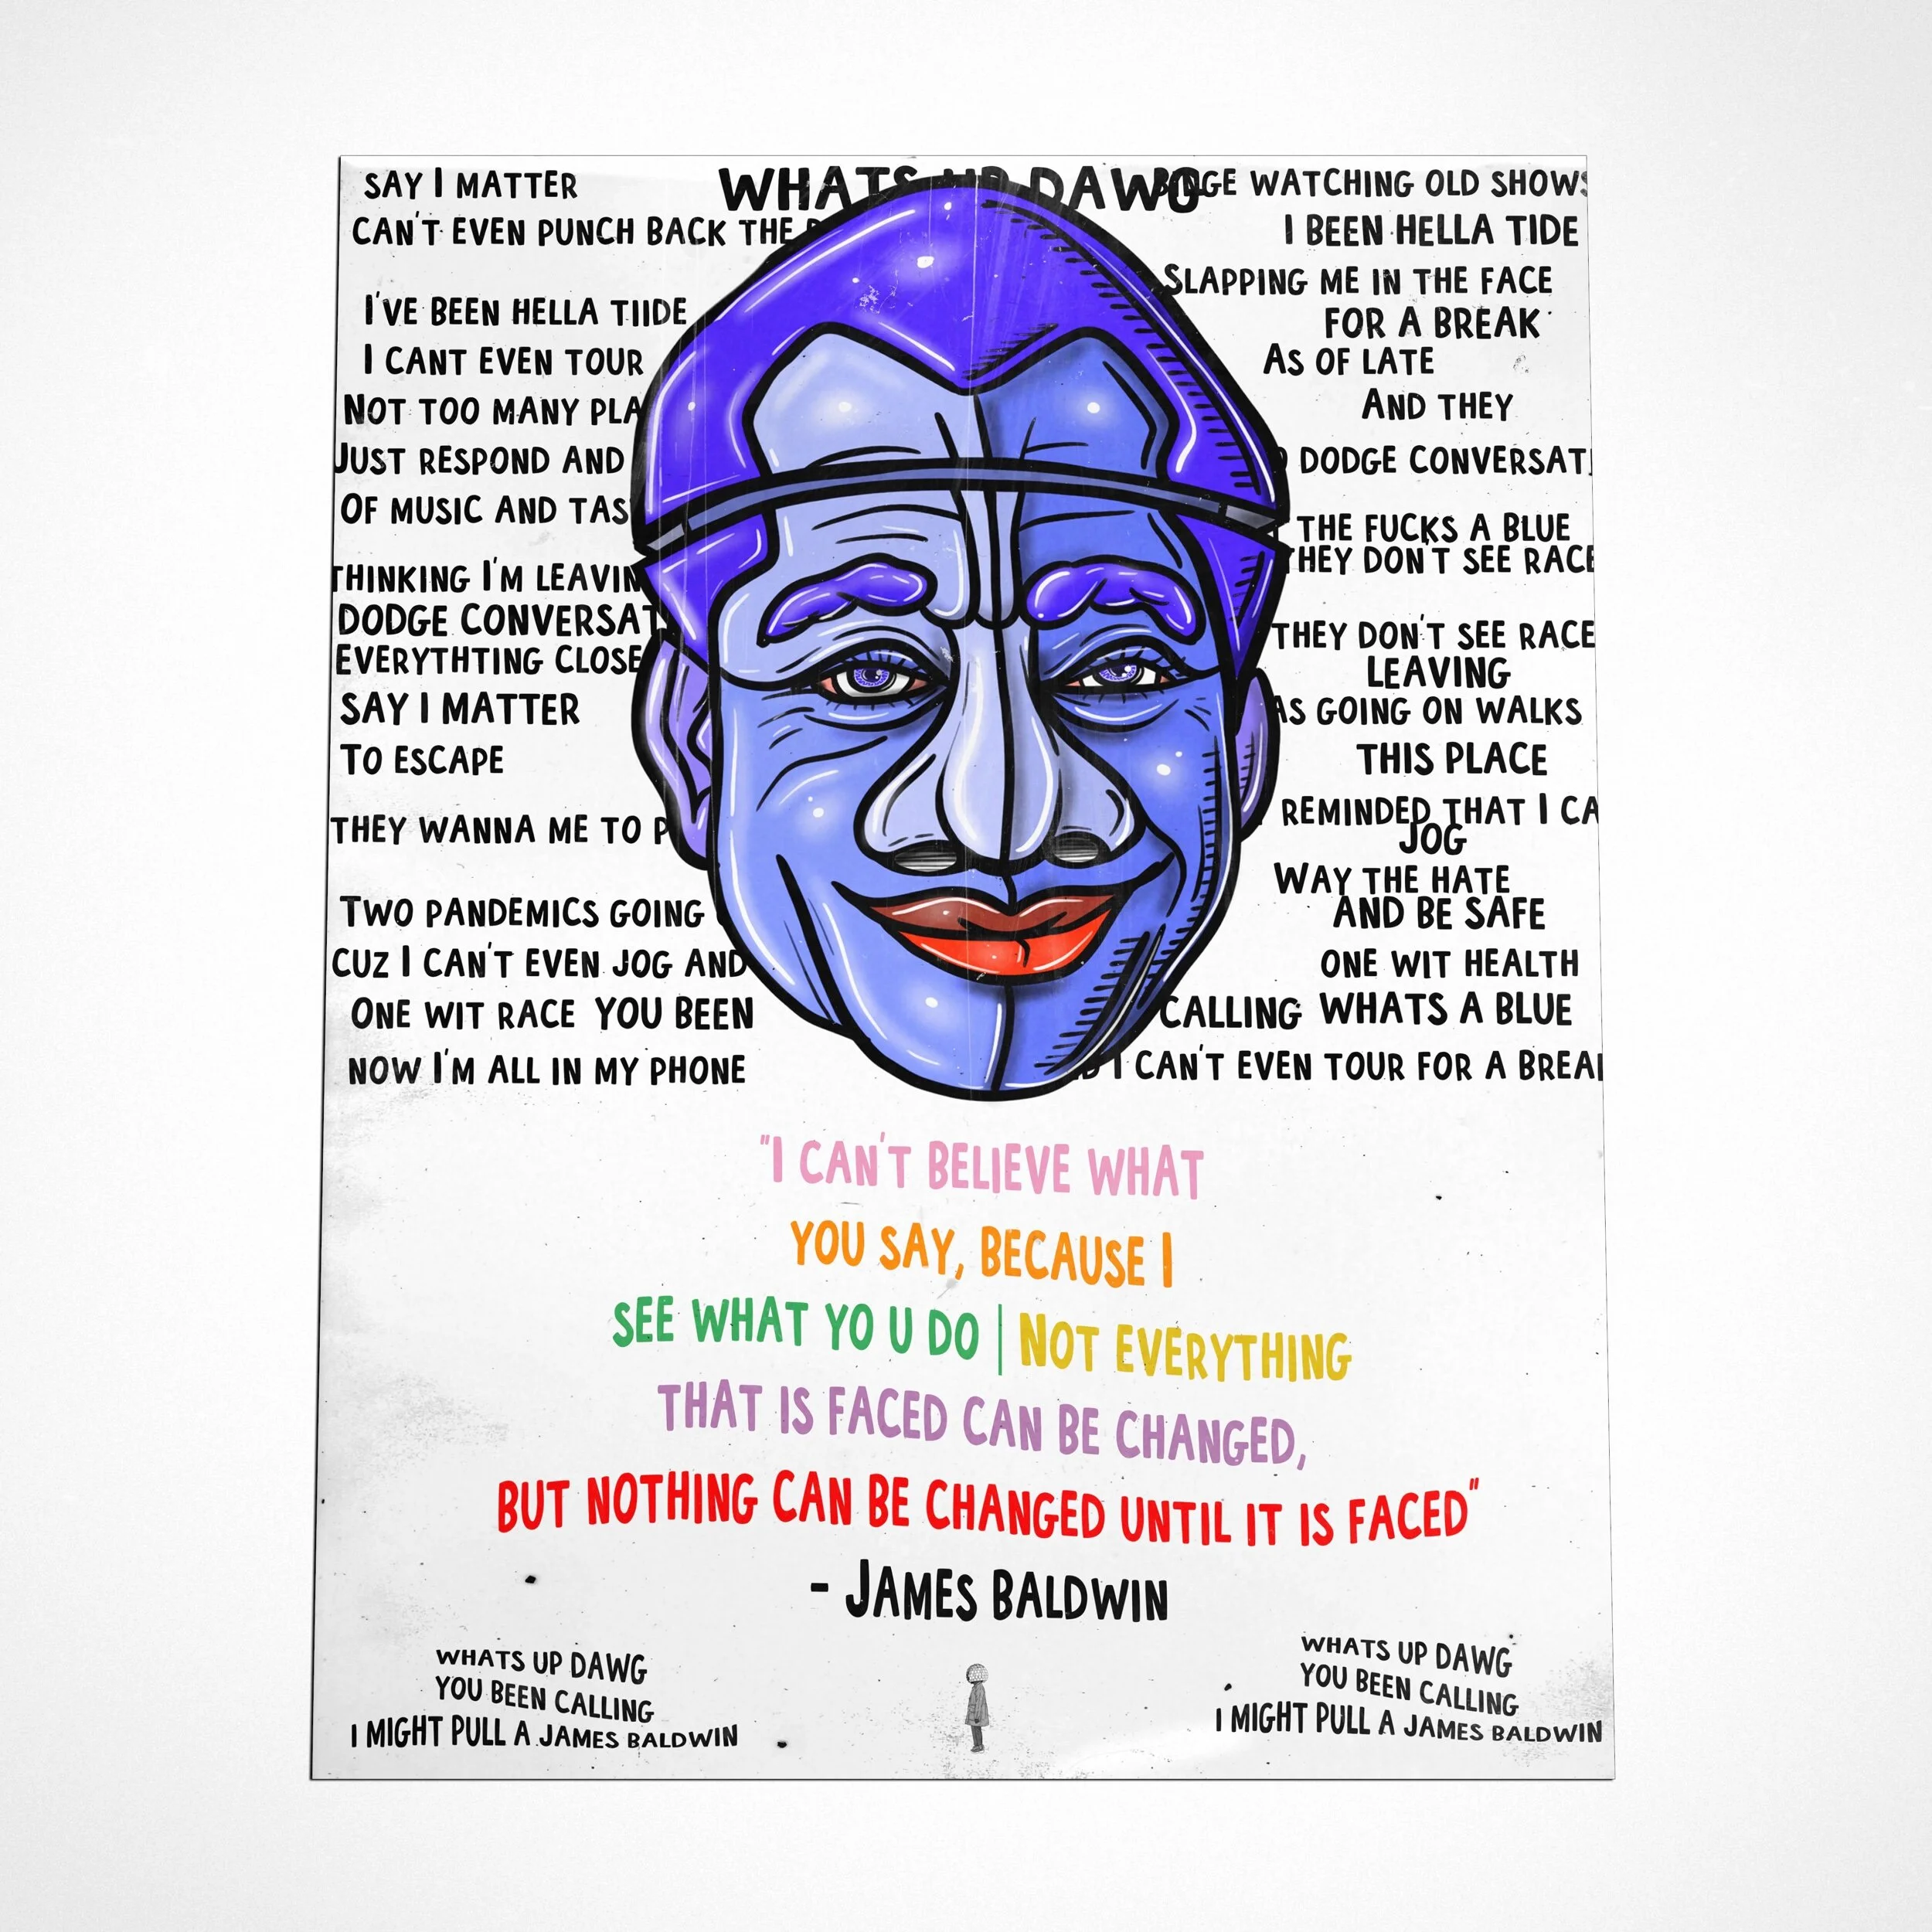 WHATS UP DAWG
SAY I MATTER
CAN'T EVEN PUNCH BACK THE
I'VE BEEN HELLA TIIDE
I CANT EVEN TOUR
NOT TOO MANY PLA
JUST RESPOND AND
OF MUSIC AND TAS
THINKING I'M LEAVIN
DODGE CONVERSAT
EVERYTHTING CLOSE
SAY I MATTER
TO ESCAPE
THEY WANNA ME TO P
TWO PANDEMICS GOING
CUZ I CAN'T EVEN JOG AND
ONE WIT RACE YOU BEEN
NOW I'M ALL IN MY PHONE
BINGE WATCHING OLD SHOWS
I BEEN HELLA TIDE
SLAPPING ME IN THE FACE
FOR A BREAK
AS OF LATE
AND THEY
DODGE CONVERSATI
THE FUCKS A BLUE
THEY DON'T SEE RACE
THEY DON'T SEE RACE
LEAVING
AS GOING ON WALKS
THIS PLACE
REMINDED THAT I CA
JOG
WAY THE HATE
AND BE SAFE
ONE WIT HEALTH
CALLING WHATS A BLUE
I CAN'T EVEN TOUR FOR A BREAK
"I CAN'T BELIEVE WHAT
YOU SAY, BECAUSE I
SEE WHAT YO U DO | NOT EVERYTHING
THAT IS FACED CAN BE CHANGED,
BUT NOTHING CAN BE CHANGED UNTIL IT IS FACED"
- JAMES BALDWIN
WHATS UP DAWG
YOU BEEN CALLING
I MIGHT PULL A JAMES BALDWIN
WHATS UP DAWG
YOU BEEN CALLING
I MIGHT PULL A JAMES BALDWIN